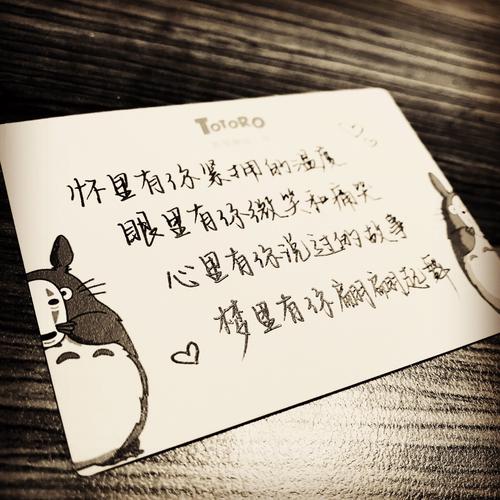 TOTORO
怀里有你紧拥的温度
眼里有你微笑和痛哭
心里有你说过的故事
梦里有你翩翩起舞